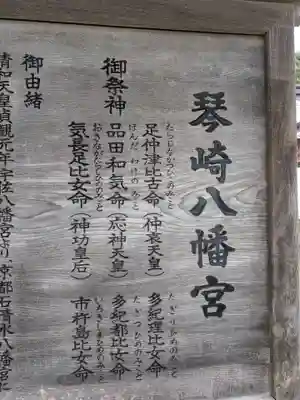 琴崎八幡宮
御祭神
たらしなかつひこのみこと
足仲津比古命(仲哀天皇)
ほんだわけのみこと
品田和気命(応神天皇)
おきながたらしひめのみこと
気長足比女命(神功皇后)
たぎりひめのみこと
多紀理比女命
たぎつひめのみこと
多紀都比女命
いちきしまひめのみこと
市杵島比女命
御由緒
清和天皇貞観元年宇佐八幡宮より、京都石清水八幡宮に